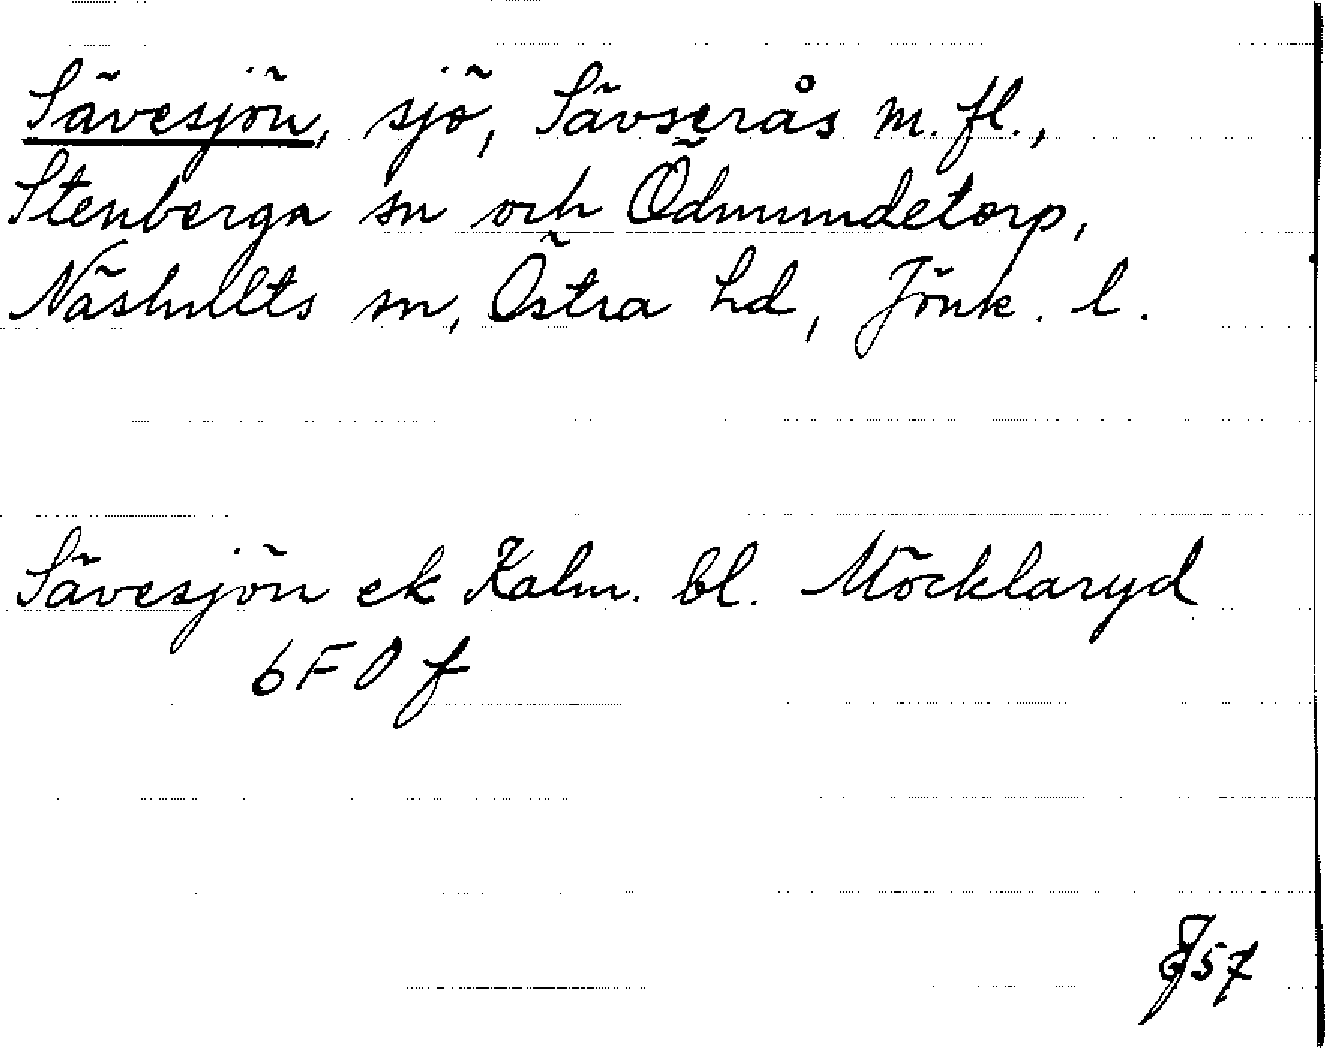 Sävesjön, sjö, Sävserås m.fl.,
Stenberga sn och Ödmundetorp,
Näshults sn, Östra hd, Jönk. l.
Sävesjön ek Kalm. bl. Möcklaryd
6F 0 f
57